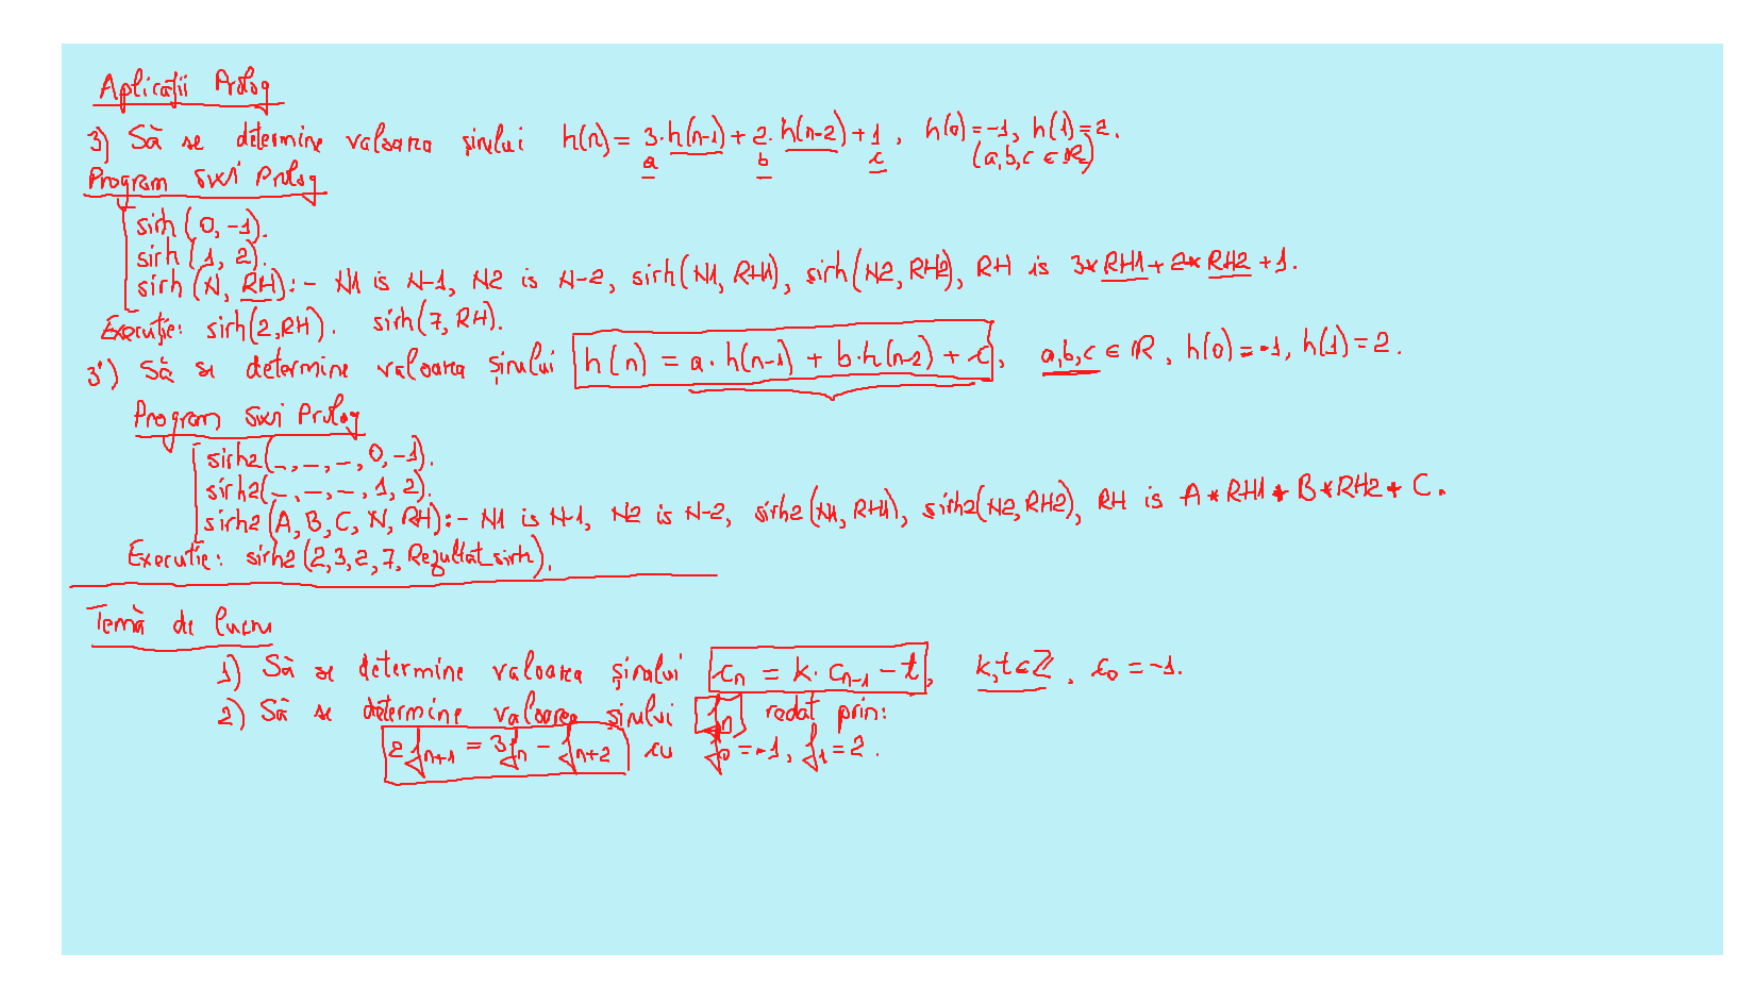 Aplicații Prolog
3) Să se determine valoarea șirului h(n) = 3·h(n-1) + 2·h(n-2) + 1, h(0) = -1, h(1) = 2.
a b c (a,b,c ∈ R)
Program Swi Prolog
sirh(0,-1).
sirh(1, 2).
sirh(N, RH):- N1 is N-1, N2 is N-2, sirh(N1, RH1), sirh(N2, RH2), RH is 3*RH1+2*RH2+1.
Execuție: sirh(2,RH). sirh(7, RH).
3') Să se determine valoarea șirului h(n) = a·h(n-1) + b·h(n-2) + c, a,b,c ∈ R, h(0) = -1, h(1) = 2.
Program Swi Prolog
sirh2(_,_,_,0,-1).
sirh2(_,_,_,1,2).
sirh2(A, B, C, N, RH):- N1 is N-1, N2 is N-2, sirh2(N1, RH1), sirh2(N2, RH2), RH is A*RH1+B*RH2+C.
Executie: sirh2(2,3,2,7,Rezultat_sirh).
Temă de lucru
1) Să se determine valoarea șirului c_n = k·c_{n-1} - t, k,t ∈ Z, c_0 = -1.
2) Să se determine valoarea șirului f_n redat prin:
2f_{n+1} = 3f_n - f_{n+2} cu f_0 = -1, f_1 = 2.